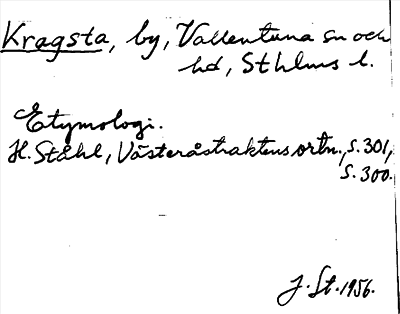 Kragsta, by, Vallentuna sn och
hd, Sthlms l.
Etymologi.
H. Ståhl, Västeråstraktens ortn., s. 301,
s. 300.
J. St. 1956.